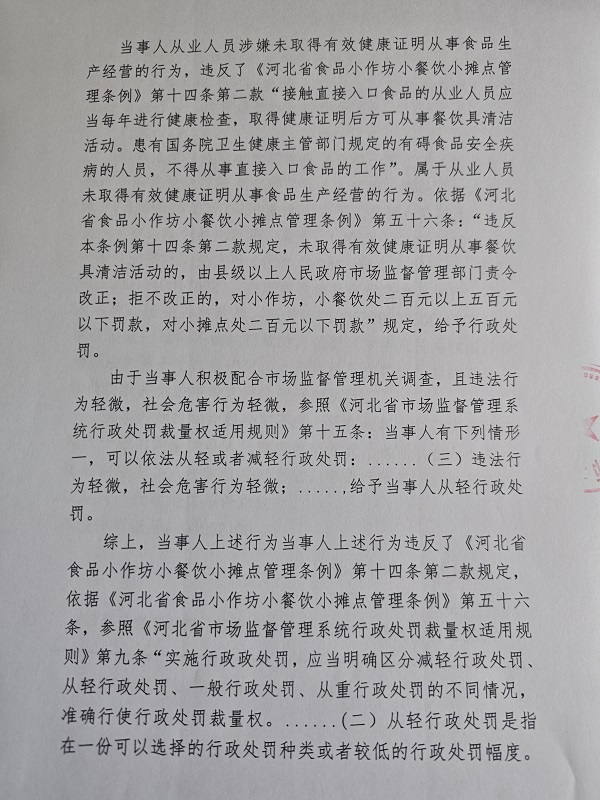 当事人从业人员涉嫌未取得有效健康证明从事食品生
产经营的行为，违反了《河北省食品小作坊小餐饮小摊点管
理条例》第十四条第二款“接触直接入口食品的从业人员应
当每年进行健康检查，取得健康证明后方可从事餐饮具清洁
活动。患有国务院卫生健康主管部门规定的有碍食品安全疾
病的人员，不得从事直接入口食品的工作”。属于从业人员
未取得有效健康证明从事食品生产经营的行为。依据《河北
省食品小作坊小餐饮小摊点管理条例》第五十六条：“违反
本条例第十四条第二款规定，未取得有效健康证明从事餐饮
具清洁活动的，由县级以上人民政府市场监督管理部门责令
改正；拒不改正的，对小作坊，小餐饮处二百元以上五百元
以下罚款，对小摊点处二百元以下罚款”规定，给予行政处
罚。
由于当事人积极配合市场监督管理机关调查，且违法行
为轻微，社会危害行为轻微，参照《河北省市场监督管理系
统行政处罚裁量权适用规则》第十五条：当事人有下列情形
一，可以依法从轻或者减轻行政处罚：......（三）违法行
为轻微，社会危害行为轻微；.....,给予当事人从轻行政处
罚。
综上，当事人上述行为当事人上述行为违反了《河北省
食品小作坊小餐饮小摊点管理条例》第十四条第二款规定，
依据《河北省食品小作坊小餐饮小摊点管理条例》第五十六
条，参照《河北省市场监督管理系统行政处罚裁量权适用规
则》第九条“实施行政政处罚，应当明确区分减轻行政处罚、
从轻行政处罚、一般行政处罚、从重行政处罚的不同情况，
准确行使行政处罚裁量权。......(二）从轻行政处罚是指
在一份可以选择的行政处罚种类或者较低的行政处罚幅度。